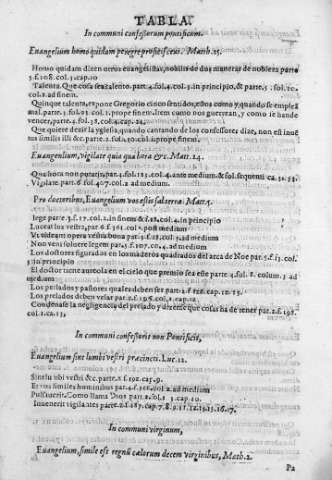 TABLA
In communi confessorum pontificum.
Euangelium homo quidam peregre proficiscens. Matth. 25.
Homo quidam dicen otros euangelistas, nobilis de dos maneras de nobleza parte
3. f. 108. col. 3. cap. 10
Talenta. Que cosa sea talento. part. 4. fol. 4. col. 3. in principio, & parte. 5. fol. 10.
col. 2. ad finem.
Quinque talenta, expone Gregorio cinco sentidos, esto a como y quando se emplea
mal. parte. 3. fol. 25 col. 1. prope finem. Item como nos guerrean, y como se han de
vencer, parte. 4. f. 37. col. 4. cap.
Que quiere dezir la yglesia, quando cantando de los confessores dize, non est inuen
tus similis illi &c. parte. 2. fol. col. prope finem.
Euangelium, vigilate quia qua hora &c. Matt. 24.
Que hora non putatis, par. 4. fol. 123. col. 4. ante medium & fol. sequenti ca. 32. 33.
Vigilate. part. 6 fol. 407. col. 2. ad medium.
Pro doctoribus, Euangelium vos estis sal terrę. Matt. 5.
lege parte. 3. f. 17. col. 2. in fine & f. 18. col. 4. in principio
Luceat lux vestra, par. 6 f. 361. col. 1. post medium
Vt videant opera vestra bona par. 2. ad medium
Non veni soluere legem par. 3. f. 107. col. 4. ad medium
Los doctores figurados en los maderos quadrados del arca de Noe par. 5. f. 13. col.
3 in principio
El doctor tiene aureola en el cielo que premio sea este parte 4. fol. columna 3 ad
medium
Los prelados y pastores quales deben ser part. 2 f. 126 cap. 12. 13.
Los prelados deben velar par. 2. f. 196. col. 1. cap. 12
Condenase la negligencia del prelado y diente que cosa ha de tener par. 2. f. 198.
col. 1. ca. 13,
In communi confessoris non Pontificis,
Euangelium sint lumbi vestri præcincti. Luc. 12.
Sint lumbi vestri &c. parte. 2 f. 192. cap. 9.
Et vos similes hominibus par. 2 f. col. 2. ad medium
Pulsauerit. Como llama Dios part. 2. col. 3 cap. 10.
Inuenerit vigilantes parte. 2. f. 187. cap. 7. 8. 9. 11. 12. 13. 15. 16. 17.
In communi virginum,
Euangelium, simile est regnũ cælorum decem virginibus, Matth. 2.
Pa